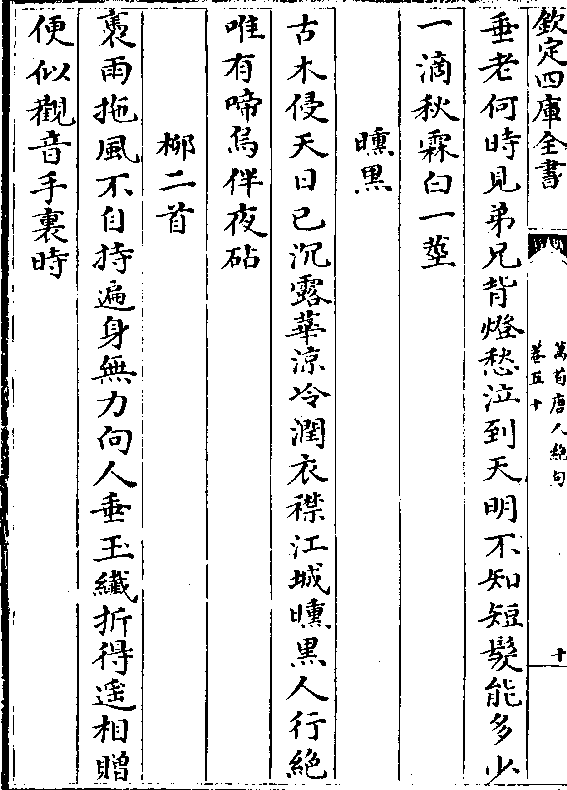 欽定四庫全書
萬首唐人絶句
卷五十
十
垂老何時見弟兄背燈愁泣到天明不知短髮能多少
一滴秋霖白一莖
曛黒
古木侵天日已沉露華涼冷潤衣襟江城曛黒人行絶
唯有啼烏伴夜砧
柳二首
褭雨拖風不自持遍身無力向人垂玉纎折得遥相贈
便似觀音手裏時